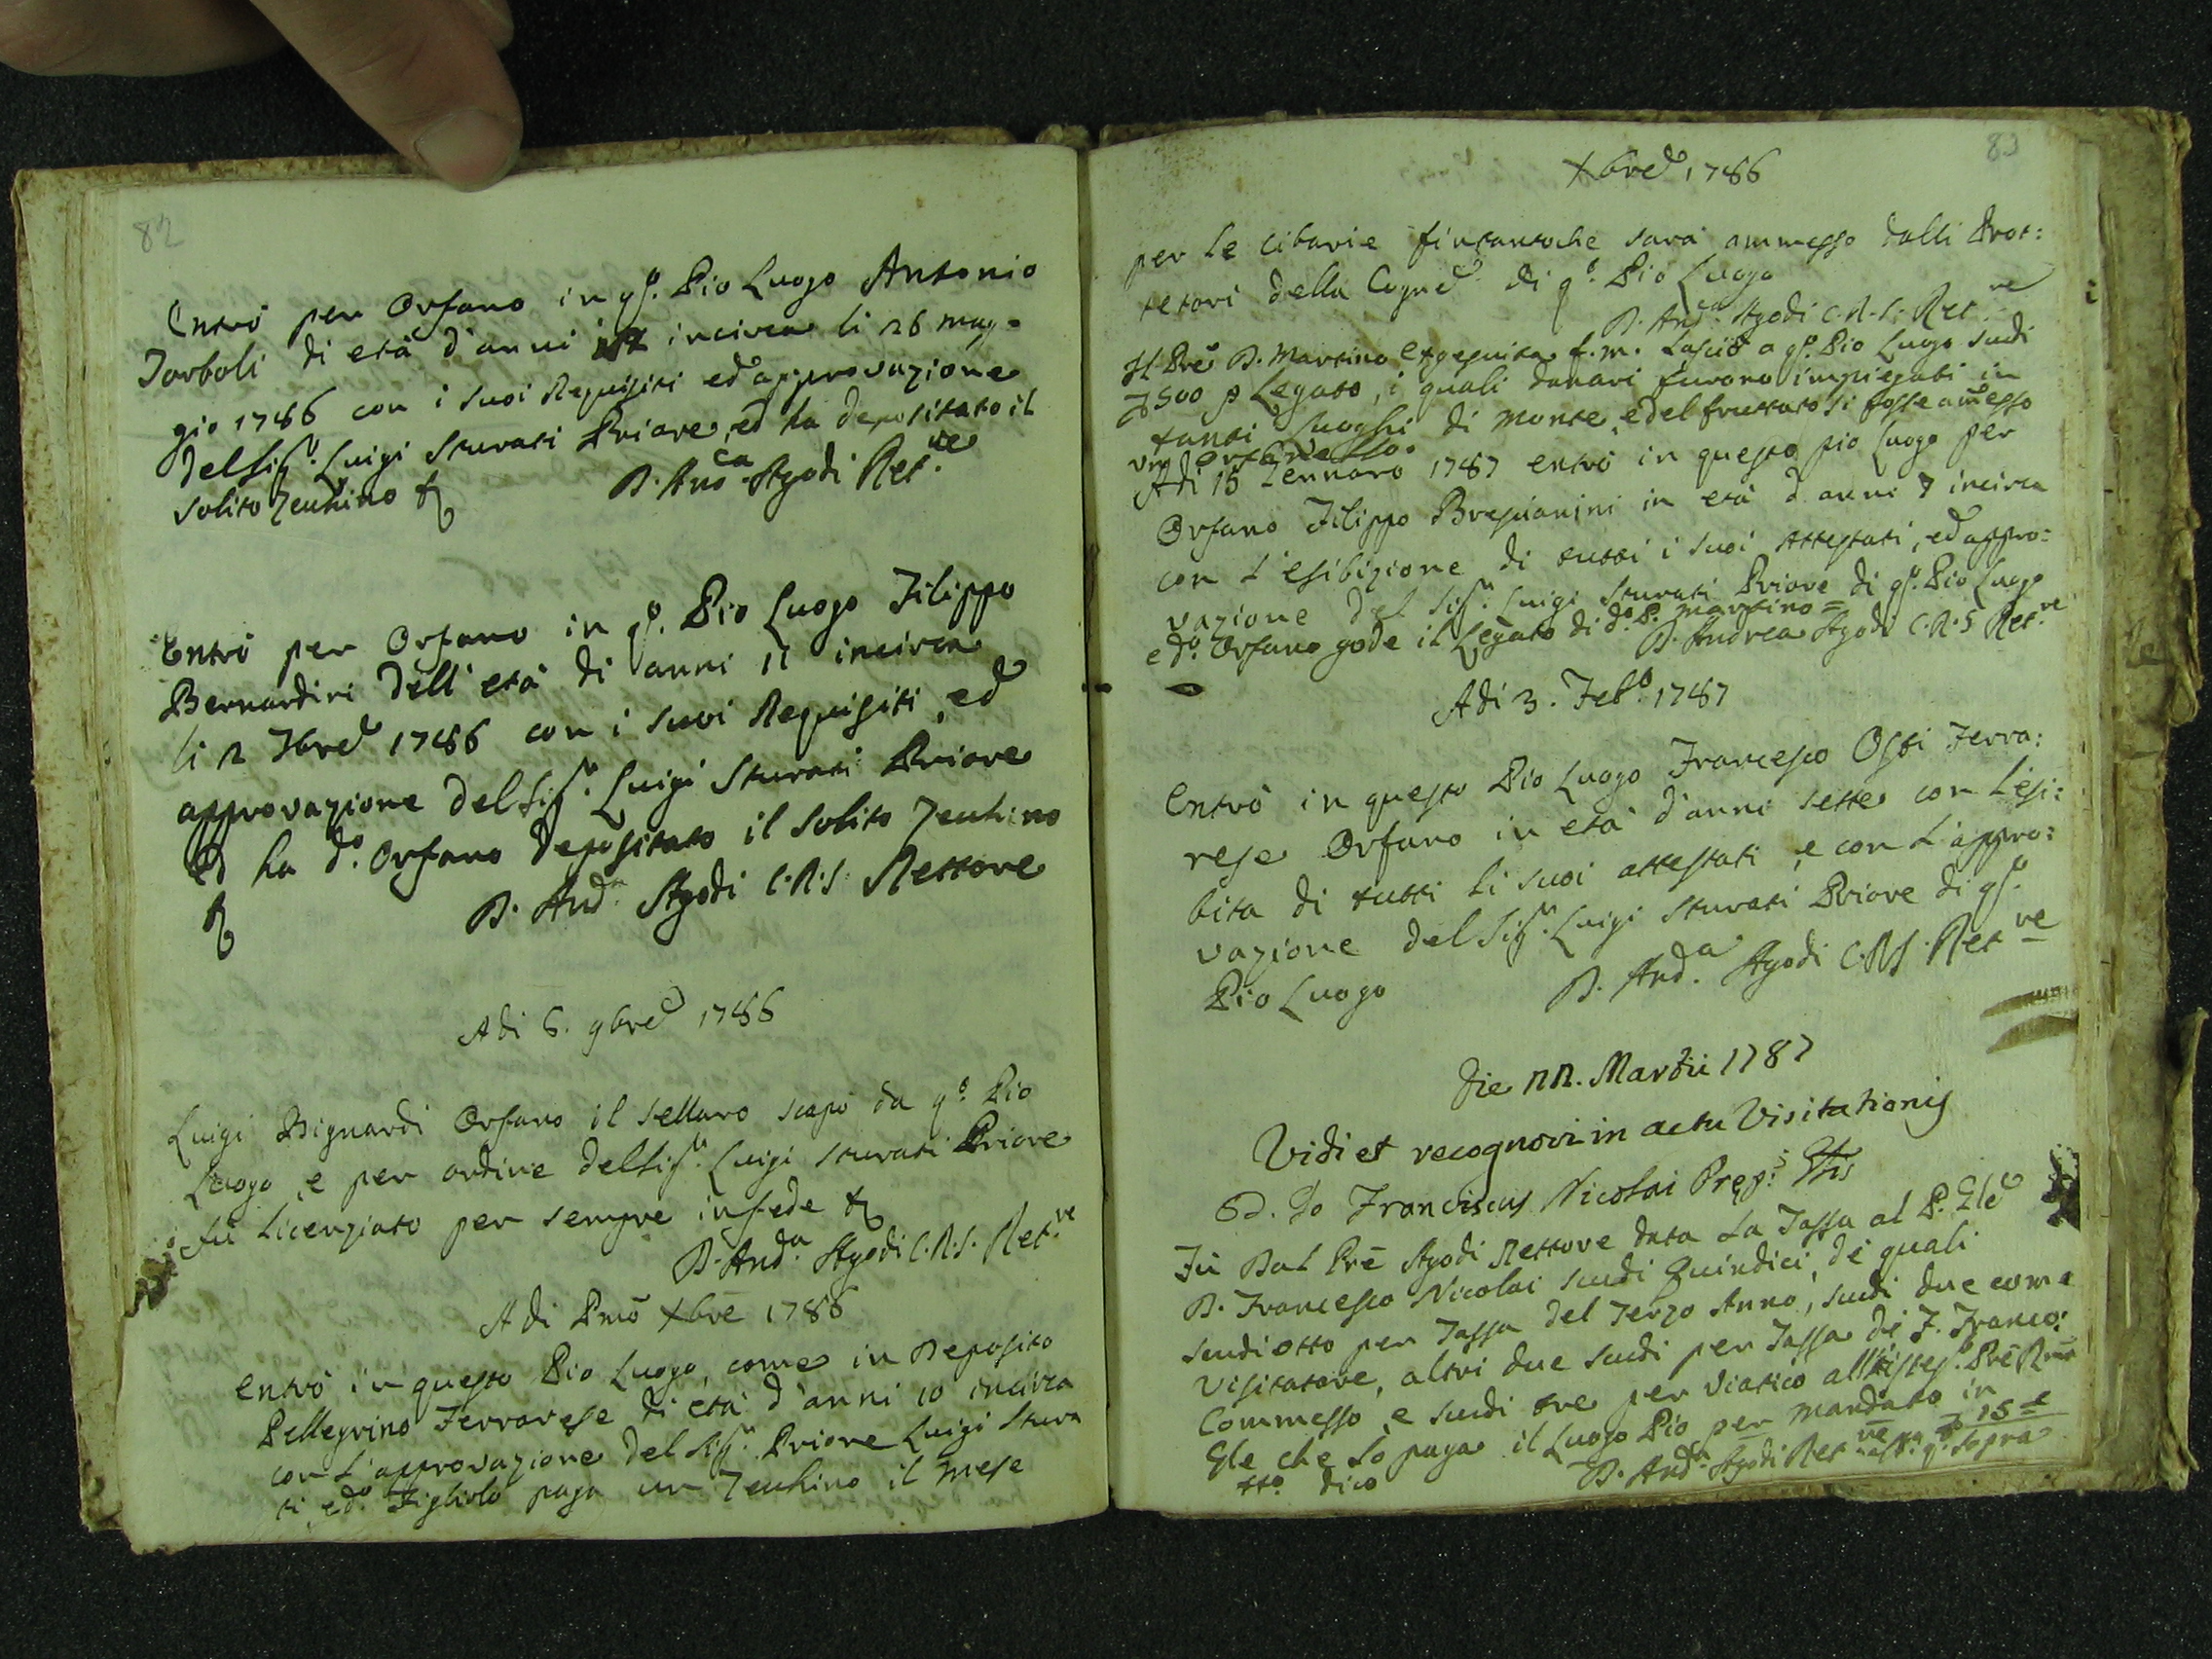 82
Entrò per Orfano in qṡ.º Pio Luogo Antonio
Torboli di età d'anni incirca li 26 mag=
gio 1786 con i suoi Requisiti ed approvazione
del Sig.r Luigi Sturati Priore, ed ha depositato il
solito Zecchino &
D. And.ca Agodi Ret.re
Entrò per Orfano in qs.º Pio Luogo Filippo
Bernardini dell'età di anni 11 incirca
li 2 7bre 1786 con i suoi Requisiti, ed
approvazione del Sig.r Luigi Sturati Priore
ed ha d.º Orfano depositato il solito Zecchino
&
D. And.a Agodi C.R.S. Rettore
Adi 6. 9bre 1786
Luigi Bignardi Orfano il sellaro scapò da q.º Pio
Luogo, e per ordine del Sig.r Luigi Sturati Priore
fù licenziato per sempre in fede &
D. And.a Agodi C.R.S. Ret.re
Adi Pmo Xbre 1786
Entrò in questo Pio Luogo, come in Deposito
Pellegrino Ferrarese di età d'anni 10 incirca
con l'approvazione del Sig.r Priore Luigi Stura
ti, e d.º Figliolo paga un Zecchino il mese
83
Xbre 1786
per le cibarie fintantoche sarà ammesso dalli Prot:
tetori della Cogne di q.º Pio Luogo
D. And.ca Agodi C.R.S. Ret.re
Il Pre D. Martino f.m. Lasciò a qs.º Pio Luogo scudi
500 p Legato, i quali danari furono impiegati in
tanti Luoghi di Monte, e del fruttato si fosse amesso
un orfanello.
Adi 15 Zennaro 1787 entrò in questo pio Luogo per
Orfano Filippo Brescianini in età d'anni 7 incirca
con l'esibizione di tutti i suoi Attestati, ed appro:
vazione del Sig.r Luigi Sturati Priore di qs.º Pio Luogo
e d.º Orfano gode il Legato di d.º P. Martino=
D. Andrea Agodi C.R.S Ret.re
Adi 3. Feb.º 1787
Entrò in questo Pio Luogo Francesco Osti Ferra:
rese Orfano in età d'anni sette con l'esi:
bita di tutti li suoi attestati, e con l'appro:
vazione del Sig.r Luigi Sturati Priore di qs.º
Pio Luogo
D. And.a Agodi C.R.S. Ret.re
Die 22. Martii 1787
Vidi et recognovi in actu Visitationis
D. Jo Franciscus Nicolai Prep:s Glis
Fù Dal Pre Agodi Rettore data La Tassa al P. Gle
D. Francesco Nicolai scudi Quindici, de quali
scudi otto per Tassa del Terzo Anno, scudi due come
Visitatore, altri due scudi per Tassa di F. Franco:
Commesso, e scudi tre per Viatico all'istes.º Pre Rmo
Gle che lo paga il Luogo Pio per mandato in
tto. dico 15
D. And.a Agodi Ret.re aff.a q.to sopra